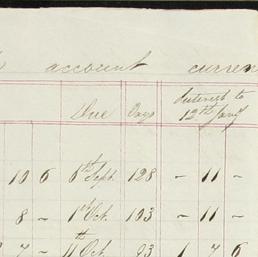 account curren
Due Days Interest to 12th Jany
10 6 6th Sept. 128 - 11 -
8 - 1st Oct. 103 - 11 -
7 - 11th Oct. 93 1 7 6